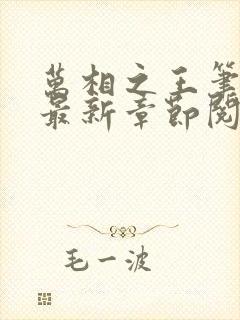 萬相之王筆
最新章節閱
毛一波